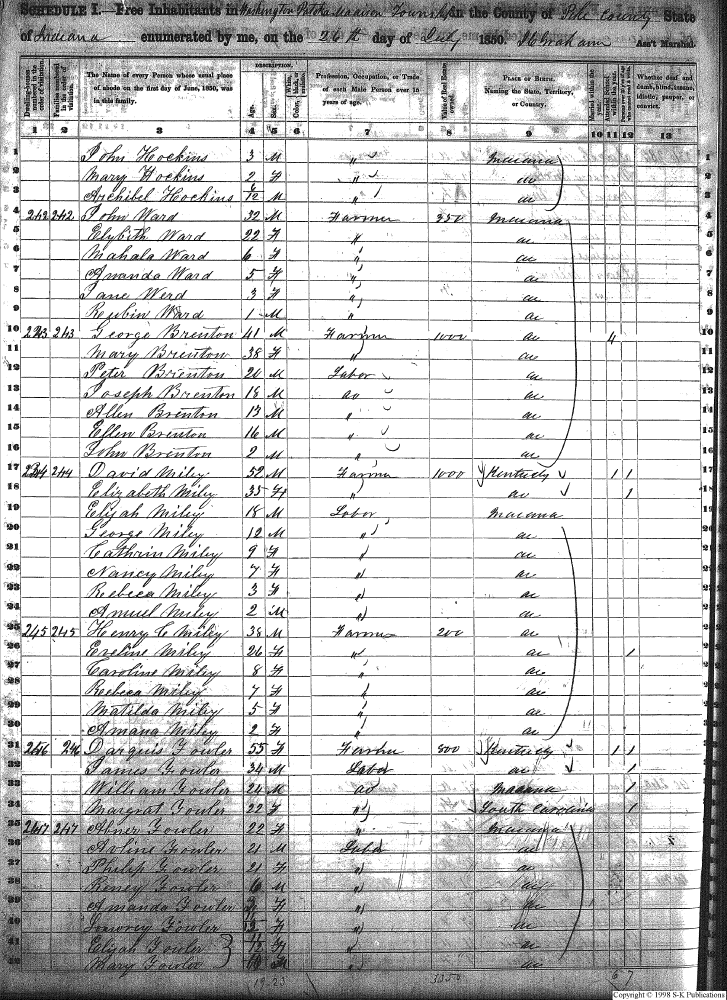 SCHEDULE I.—Free Inhabitants in Washington Patoka Madison Township in the County of Pike County State
of Indiana enumerated by me, on the 26th day of July 1850. Graham Ass't Marshal.
DESCRIPTION.
The Name of every Person whose usual place of abode on the first day of June, 1850, was in this family.
Age.
Sex.
Profession, Occupation, or Trade of each Male Person over 15 years of age.
Value of Real Estate owned.
PLACE OF BIRTH. Naming the State, Territory, or Country.
Whether deaf and dumb, blind, insane, idiotic, pauper, or convict.
1 2 3 4 5 6 7 8 9 10 11 12 13
1 John Hockins 3 M " Indiana
2 Mary Hockins 2 F " do
3 Archibel Hockins 6/12 M " do
4 242 242 John Ward 32 M Farmer 350 Indiana
5 Elybith Ward 22 F " do
6 Mahala Ward 6 F " do
7 Amanda Ward 5 F " do
8 Jane Werd 3 F " do
9 Reubin Ward 1 M " do
10 243 243 George Brenton 41 M Farmer 1000 do 4
11 Mary Brenton 38 F " do
12 Peter Brenton 20 M Labor do
13 Joseph Brenton 18 M do do
14 Allen Brenton 13 M " do
15 Ellen Brenton 16 M " do
16 John Brenton 2 M " do
17 244 244 David Miley 52 M Farmer 1000 Kentucky 1 1
18 Elizabeth Miley 35 F " do 1
19 Elijah Miley 18 M Labor Indiana
20 George Miley 12 M " do
21 Cathrin Miley 9 F " do
22 Nancy Miley 7 F " do
23 Rebeca Miley 3 F " do
24 Amuel Miley 2 M " do
25 245 245 Henry C Miley 38 M Farmer 200 do
26 Eveline Miley 26 F " do 1
27 Caroline Miley 8 F " do
28 Rebeca Miley 7 F " do
29 Matilda Miley 5 F " do
30 Amana Miley 2 F " do
31 246 246 Darquis Fowler 55 F Farmer 500 Kentucky 1 1
32 James Fowler 34 M Labor do 1
33 William Fowler 24 M do Indiana 1
34 Margrat Fowler 22 F " South Carolina 1
35 247 247 Abner Fowler 22 F " Indiana
36 Aoline Fowler 21 M Labor do
37 Philip Fowler 21 F " do
38 Riney Fowler 6 M " do
39 Amanda Fowler F " do
40 Fowler F " do
41 Elijah Fowler " do
42 Mary Fowler " do
19 23 1350 6 7
Copyright © 1998 S-K Publications